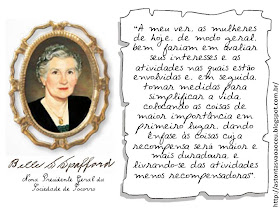 "A meu ver, as mulheres
de hoje, de modo geral,
bem fariam em avaliar
seus interesses e as
atividades nas quais estão
envolvidas e, em seguida,
tomar medidas para
simplificar a vida,
colocando as coisas de
maior importância em
primeiro lugar, dando
ênfase às coisas cuja
recompensa será maior e
mais duradoura, e
livrando-se das atividades
menos recompensadoras".
Belle S. Spafford
Nona Presidente Geral da
Sociedade de Socorro